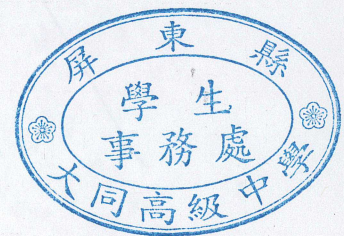 屏東縣
學生
事務處
大同高級中學